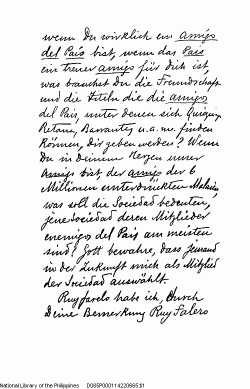 wenn Du wirklich ein amigo
del País bist, wenn das País
ein treuer amigo für Dich ist,
was brauchst Du die Freundschaft
und die Titeln die die amigo
del País, unter denen sich Quiogue,
Retana, Barrantes u. a. m. finden
können, dir geben werden? Wenn
Du in deinem Herzen unser
Amigo bist, der amigo der 6
Millionen unterdrückten Malaien,
was soll die Sociedad bedeuten,
jene Sociedad deren Mitglieder
enemigo del País am meisten
sind? Gott bewahre, dass jemand
in der Zukunft mich als Mitglied
der Sociedad auswählt.
Ruyfarelo habe ich, durch
Deine Bemerkung Ruy Falero
National Library of the Philippines D08SP000114220665.$1